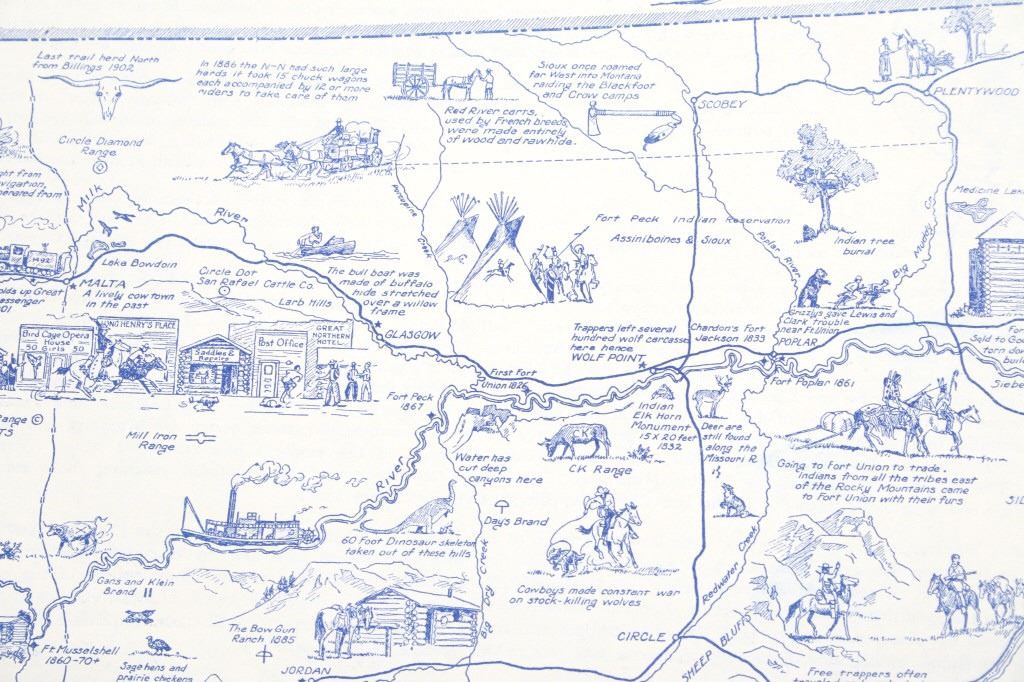 Last trail herd North
from Billings 1902
In 1886 the N-N had such large
herds it took 15 chuck wagons
each accompanied by 12 or more
riders to take care of them
Red River carts,
used by French breeds,
were made entirely
of wood and rawhide.
Sioux once roamed
far West into Montana
raiding the Blackfoot
and Crow camps
SCOBEY
PLENTYWOOD
Circle Diamond
Range
ght from
vigation,
nerated from
Milk
River
Porcupine
Creek
Fort Peck Indian Reservation
Assiniboines & Sioux
Poplar
River
Indian tree
burial
Big Muddy C.
Medicine Lake
1492
Lake Bowdoin
MALTA
A lively cow town
in the past
olds up Great
assenger
01
Circle Dot
San Rafael Cattle Co.
Larb Hills
The bull boat was
made of buffalo
hide stretched
over a willow
frame
GLASGOW
Grizzlys gave Lewis and
Clark trouble
near Ft. Union
POPLAR
Trappers left several
hundred wolf carcasses
here hence
WOLF POINT
Chardon's Fort
Jackson 1833
For
Sold to Go
torn do
buil
Siebe
Bird Cage Opera
House
50 Girls 50
LONG HENRY'S PLACE
Saddles &
Repairs
Post Office
GREAT
NORTHERN
HOTEL
First Fort
Union 1826
Fort Peck
1867
Fort Poplar 1861
Range ©
TS
Mill Iron
Range
Water has
cut deep
canyons here
CK
CK Range
Indian
Elk Horn
Monument
15 X 20 feet
1832
Deer are
still found
along the
Missouri R.
Going to Fort Union to trade.
Indians from all the tribes east
of the Rocky Mountains came
to Fort Union with their furs
SID
River
Day's Brand
60 Foot Dinosaur skeleton
taken out of these hills
Big Dry Creek
Cowboys made constant war
on stock-killing wolves
Redwater
Creek
Gans and Klein
Brand II
The Bow Gun
Ranch 1885
Ft. Musselshell
1860-70+
Sage hens and
prairie chickens
JORDAN
CIRCLE
SHEEP BLUFFS
Free trappers often